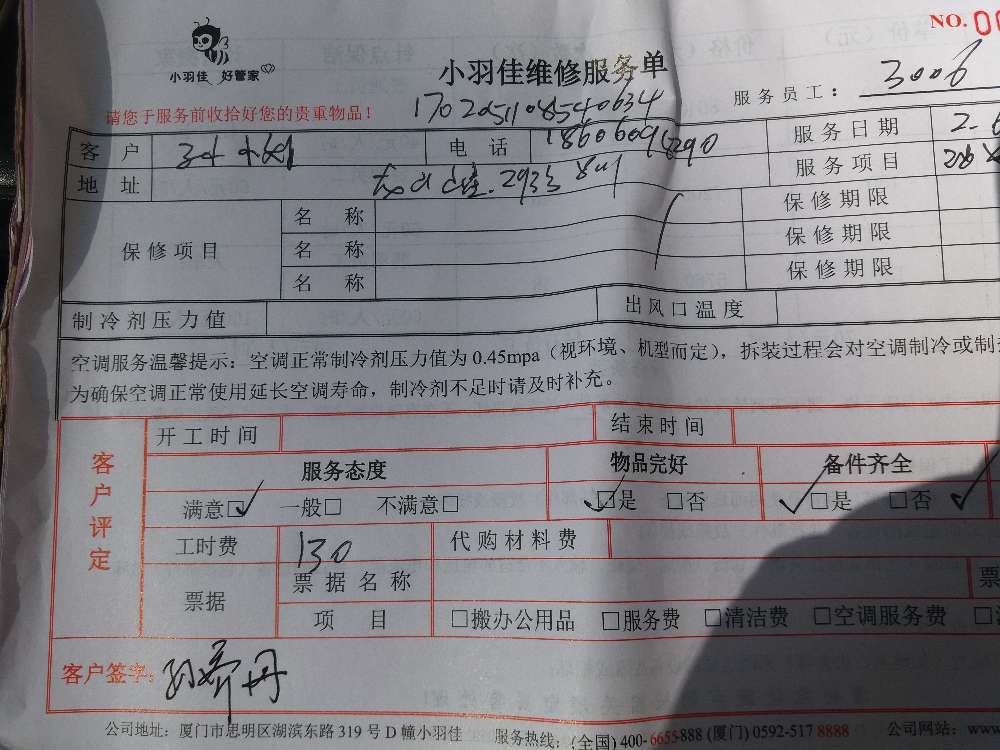 NO. 00
小羽佳 好管家
小羽佳维修服务单
服务员工： 3006
请您于服务前收拾好您的贵重物品！
客 户
电 话
服务日期
地 址
服务项目
保修项目
名 称
保修期限
名 称
保修期限
名 称
保修期限
制冷剂压力值
出风口温度
空调服务温馨提示：空调正常制冷剂压力值为 0.45mpa（视环境、机型而定），拆装过程会对空调制冷或制
为确保空调正常使用延长空调寿命，制冷剂不足时请及时补充。
客户评定
开工时间
结束时间
服务态度
物品完好
备件齐全
满意□✓ 一般□ 不满意□
□是 □否
□是 □否
工时费 130
代购材料费
票据
票据名称
票
项 目
□搬办公用品 □服务费 □清洁费 □空调服务费
客户签字：
公司地址：厦门市思明区湖滨东路 319 号 D 幢小羽佳 服务热线：(全国) 400-6655-888 (厦门) 0592-517 8888 公司网站：www